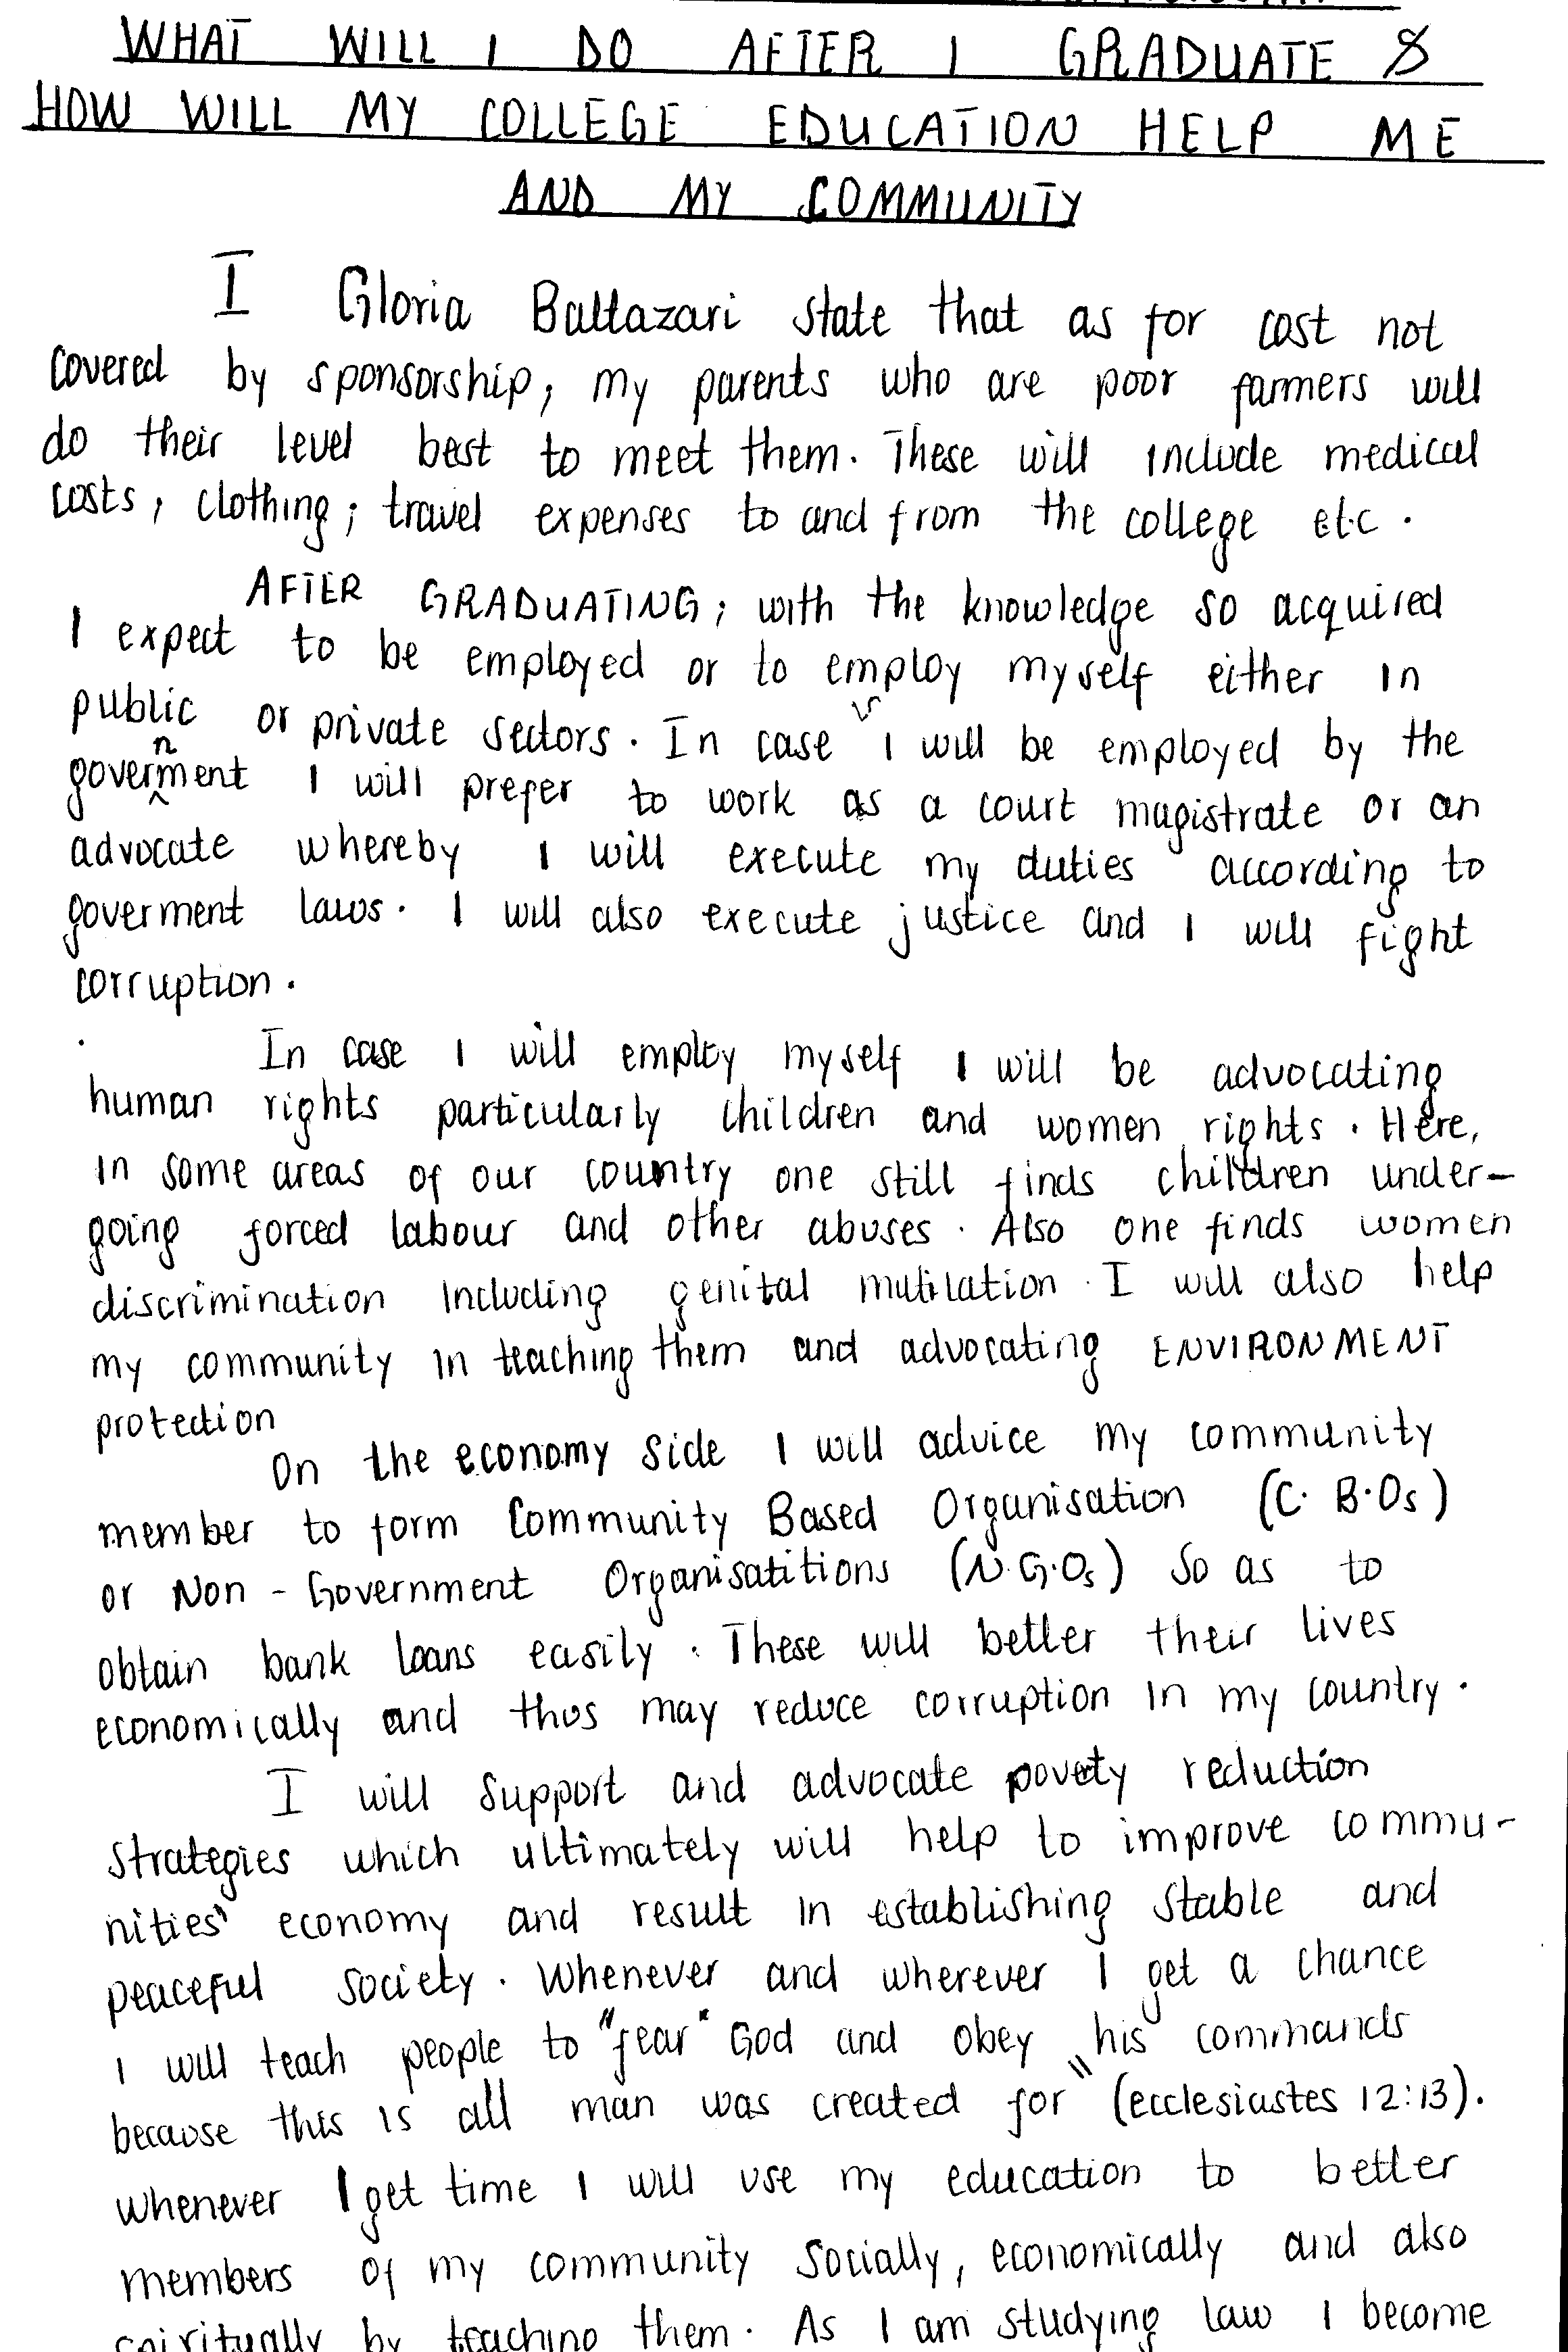 WHAT WILL I DO AFTER I GRADUATE &
HOW WILL MY COLLEGE EDUCATION HELP ME
AND MY COMMUNITY
I Gloria Baltazari state that as for cost not
covered by sponsorship, my parents who are poor farmers will
do their level best to meet them. These will include medical
costs, clothing; travel expenses to and from the college etc.
AFTER GRADUATING; with the knowledge so acquired
I expect to be employed or to employ myself either in
public or private sectors. In case I will be employed by the
government I will prefer to work as a court magistrate or an
advocate whereby I will execute my duties according to
goverment laws. I will also execute justice and I will fight
corruption.
In case I will employ myself I will be advocating
human rights particularly children and women rights. Here,
in some areas of our country one still finds children under-
going forced labour and other abuses. Also one finds women
discrimination including genital mutilation. I will also help
my community in teaching them and advocating ENVIRONMENT
protection
On the economy side I will advice my community
member to form Community Based Organisation (C.B.Os)
or Non-Government Organisatitions (N.G.Os) so as to
obtain bank loans easily. These will better their lives
economically and thus may reduce corruption in my country.
I will support and advocate povety reduction
strategies which ultimately will help to improve commu-
nities' economy and result in establishing stable and
peaceful society. Whenever and wherever I get a chance
I will teach people to "fear" God and obey his commands
because this is all man was created for" (ecclesiastes 12:13).
whenever I get time I will use my education to better
members of my community socially, economically and also
spiritually by teaching them. As I am studying law I become